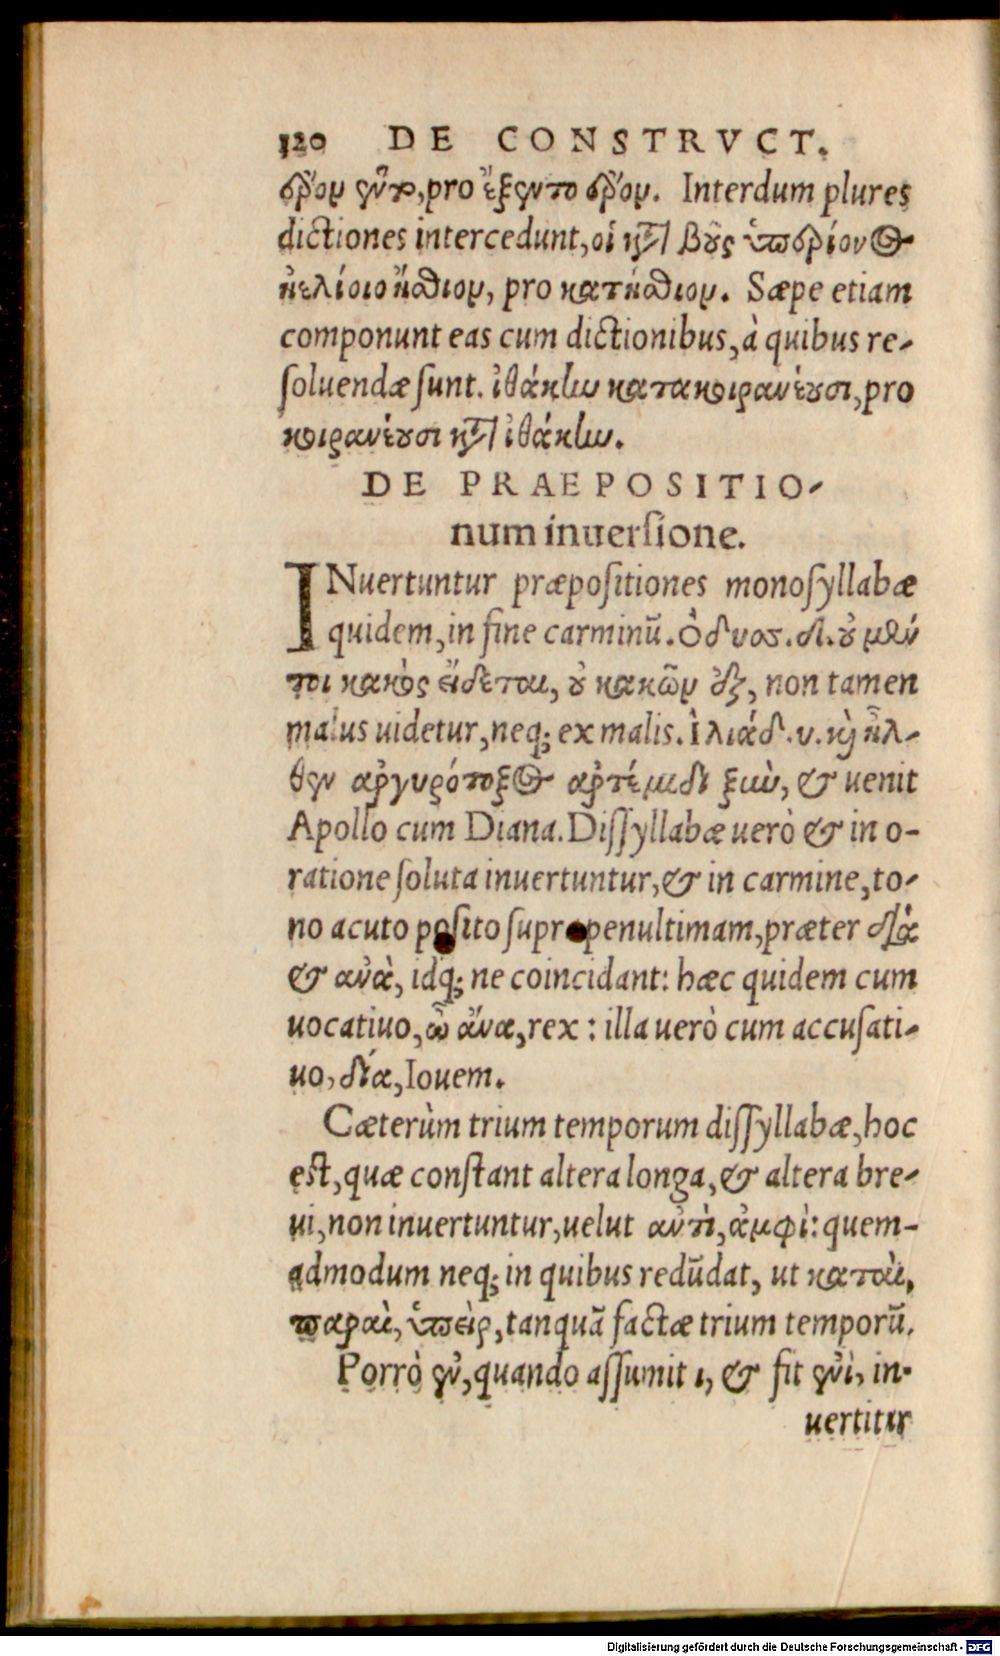 120 DE CONSTRVCT.
ἔρον ἕντο, pro ἐξέντο ἔρον. Interdum plures
dictiones intercedunt, οἱ κατὰ βοῦς ὑπερίονος
ἠελίοιο ἤσθιον, pro κατήσθιον. Sæpe etiam
componunt eas cum dictionibus, à quibus re-
soluendæ sunt. ἰθάκην κατακοιρανέουσι, pro
κοιρανέουσι κατὰ ἰθάκην.
DE PRAEPOSITIO-
num inuersione.
INuertuntur præpositiones monosyllabæ
quidem, in fine carminũ. Ὀδυσσ. δ. οὐ μέν
τοι κακὸς εἴδεται, οὐ κακῶν ἐξ, non tamen
malus uidetur, neq; ex malis. Ἰλιάδ. υ. καὶ ἦλ-
θεν ἀργυρότοξος ἀρτέμιδι ξὺν, & uenit
Apollo cum Diana. Dissyllabæ uerò & in o-
ratione soluta inuertuntur, & in carmine, to-
no acuto posito supra penultimam, præter διὰ
& ἀνὰ, idq; ne coincidant: hæc quidem cum
uocatiuo, ὦ ἄνα, rex: illa uerò cum accusati-
uo, δία, Iouem.
Cæterùm trium temporum dissyllabæ, hoc
est, quæ constant altera longa, & altera bre-
ui, non inuertuntur, uelut ἀντὶ, ἀμφὶ: quem-
admodum neq; in quibus redũdat, ut καταὶ,
παραὶ, ὑπεὶρ, tanquã factæ trium temporũ.
Porrò ἐν, quando assumit ι, & fit ἐνὶ, in-
uertitur
Digitalisierung gefördert durch die Deutsche Forschungsgemeinschaft - DFG